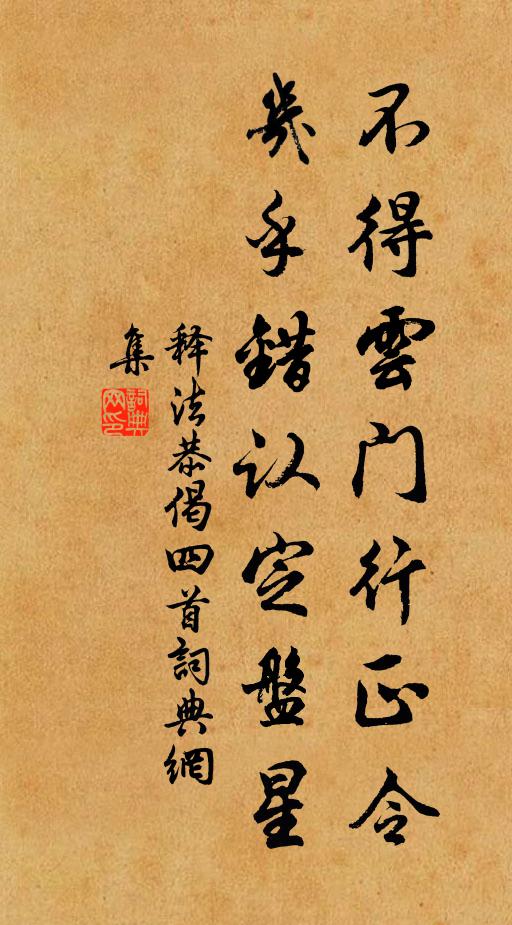 不得雲门行正令
几乎錯认定盤星
释法恭偈四首詞典網
集
詞典
网印